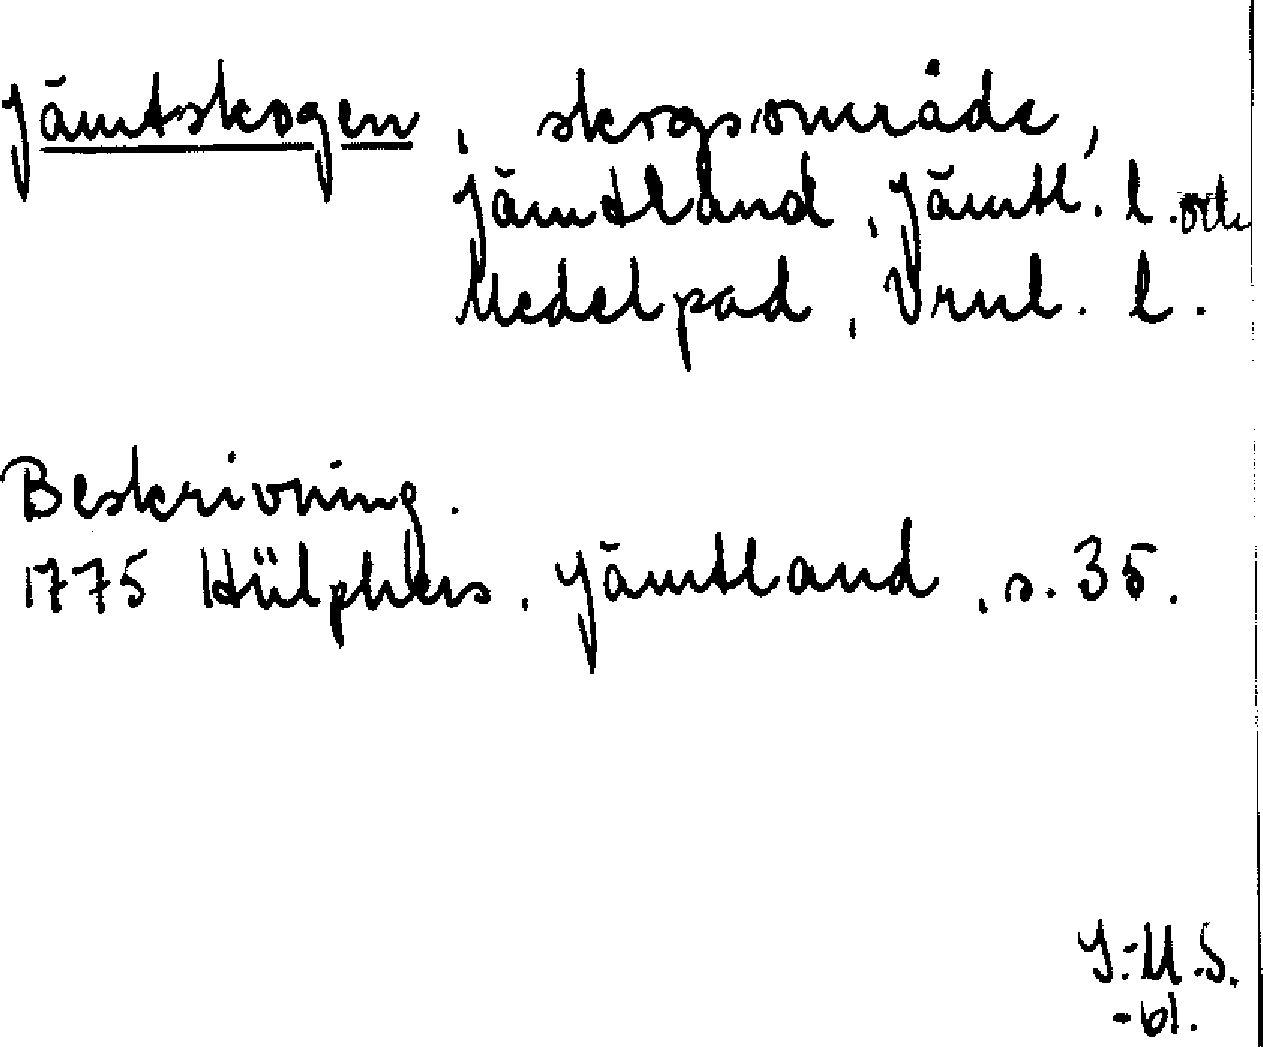 Jämtskogen, skogsområde,
Jämtland, Jämtl. l. och
Medelpad, Vrnl. l.
Beskrivning.
1775 Hülphers, Jämtland, s. 35.
I.-M.S.
-61.